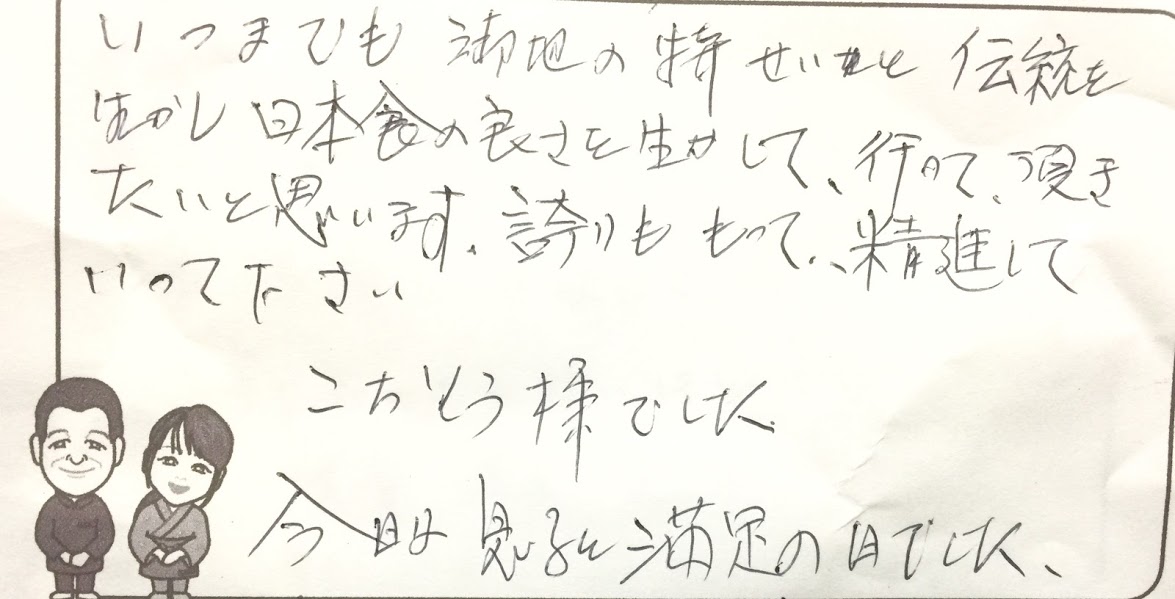 いつまでも 御地の 特せいと 伝統を
生かし 日本食の良さを生かして、行って、頂き
たいと思います。誇りも もって、精進して
いって下さい
ごちそう様でした
今日は 息子と満足の日でした、